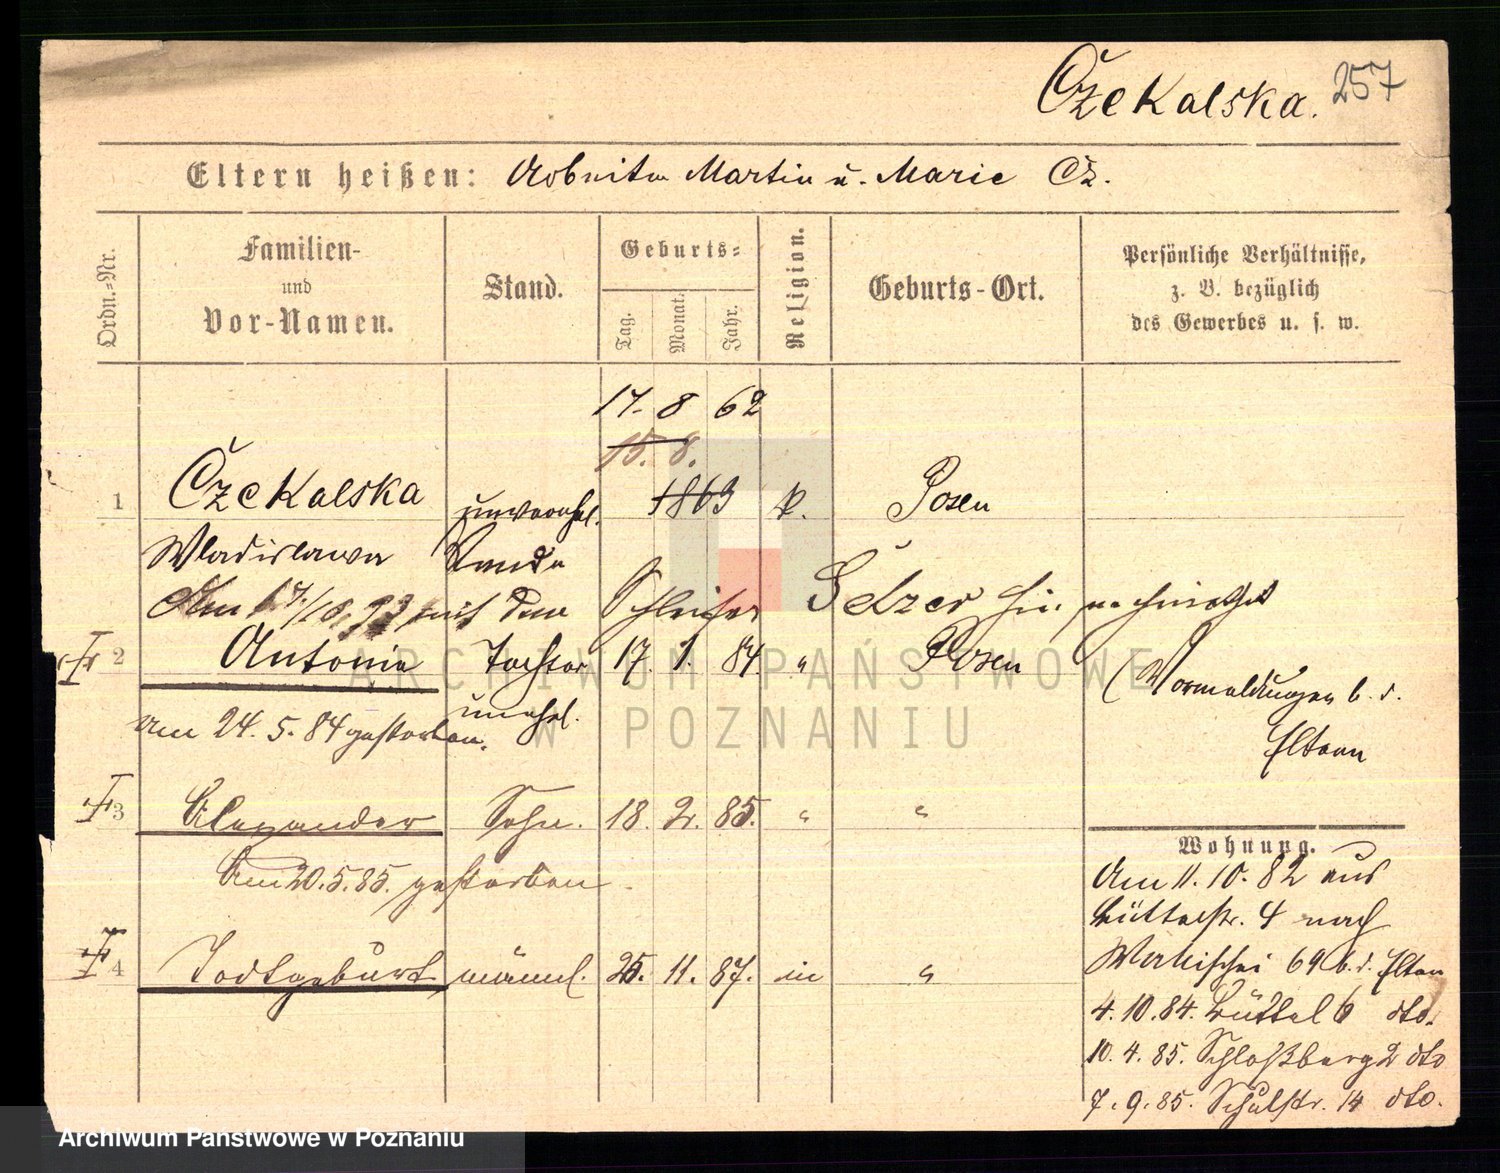 Czekalska. 257
Eltern heißen: Arbeiter Martin u. Marie Cz.
Ordn.-Nr.
Familien-
und
Vor-Namen.
Stand.
Geburts-
Tag. Monat. Jahr.
Religion.
Geburts-Ort.
Persönliche Verhältnisse,
z. B. bezüglich
des Gewerbes u. s. w.
17. 8 62
15. 8.
1 Czekalska unverehel. 1863 k. Posen
Wladislawa
Am 17./10. mit dem Schleifer Selzer hier
2 Antonie Tochter 17. 1. 84. " Posen
unehel.
am 24. 5. 84 gestorben.
(Vormeldungen b. d.
Eltern
3 Alexander Sohn. 18. 2. 85. " "
Am 20. 5. 85. gestorben.
4 Todtgeburt männl. 25. 11. 87. "
Wohnung.
Am 11. 10. 82 aus
Büttelstr. 4 nach
Wallischei 69 b. d. Eltern
4. 10. 84. Büttel 6 dto.
10. 4. 85. Schloßberg 2 dto
7. 9. 85. Schulstr. 14 dto.
ARCHIWUM PAŃSTWOWE
W POZNANIU
Archiwum Państwowe w Poznaniu